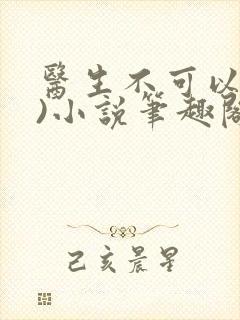 醫生不可以
)小說筆趣閣
己亥晨星